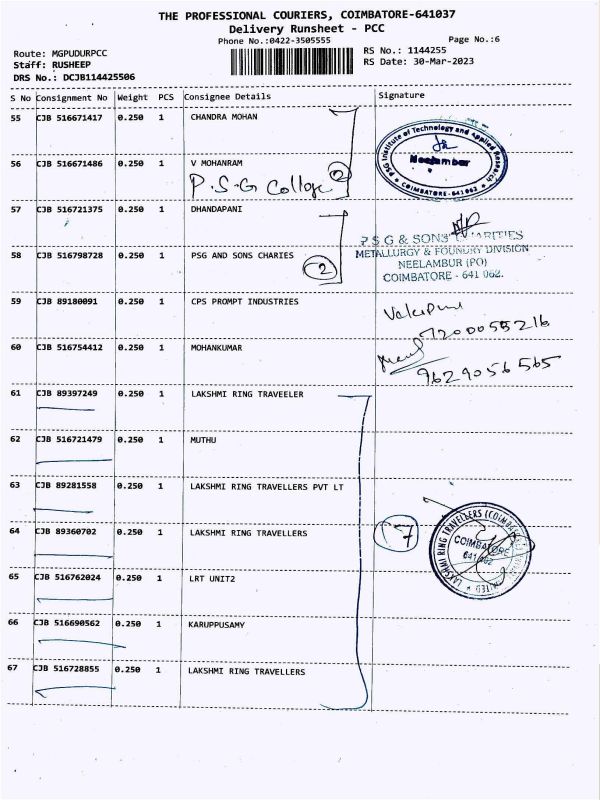 THE PROFESSIONAL COURIERS, COIMBATORE-641037
Delivery Runsheet - PCC
Phone No.:0422-3505555 Page No.:6
Route: MGPUDURPCC RS No.: 1144255
Staff: RUSHEEP RS Date: 30-Mar-2023
DRS No.: DCJB114425506
S No Consignment No Weight PCS Consignee Details Signature
55 CJB 516671417 0.250 1 CHANDRA MOHAN
PSG Institute of Technology and Applied Research
Neelambur
COIMBATORE-641 062
56 CJB 516671486 0.250 1 V MOHANRAM
P.S.G College 2
57 CJB 516721375 0.250 1 DHANDAPANI
P S G & SONS' CHARITIES
METALLURGY & FOUNDRY DIVISION
NEELAMBUR (PO)
COIMBATORE - 641 062.
58 CJB 516798728 0.250 1 PSG AND SONS CHARIES
2
59 CJB 89180091 0.250 1 CPS PROMPT INDUSTRIES
7200055216
60 CJB 516754412 0.250 1 MOHANKUMAR
9629056565
61 CJB 89397249 0.250 1 LAKSHMI RING TRAVEELER
62 CJB 516721479 0.250 1 MUTHU
63 CJB 89281558 0.250 1 LAKSHMI RING TRAVELLERS PVT LT
64 CJB 89360702 0.250 1 LAKSHMI RING TRAVELLERS
7
LAKSHMI RING TRAVELLERS (COIMBATORE) LIMITED
COIMBATORE
65 CJB 516762024 0.250 1 LRT UNIT2
66 CJB 516690562 0.250 1 KARUPPUSAMY
67 CJB 516728855 0.250 1 LAKSHMI RING TRAVELLERS